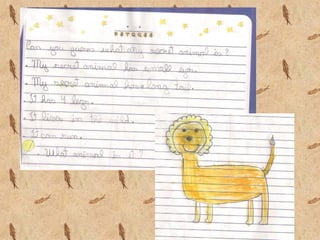 Can you guess what my secret animal is?
• My secret animal has small
• My secret animal has long tail.
• It has 4 legs.
• It lives in the wild.
• It can run.
• What animal is it?